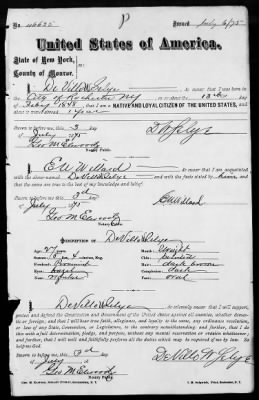 No. 46635 Issued July 6/75
United States of America.
State of New York,
County of Monroe.
I, De Villo W. Selye do swear that I was born in the
City of Rochester NY on the 13th day
of Feby 1848 am a NATIVE AND LOYAL CITIZEN OF THE UNITED STATES, and
Sworn to before me, this 3
day of July 1875
Geo. M. Elwood
Notary Public.
I, E A Willard do swear that I am acquainted
with the above-named De Villo W Selye and with the facts stated by him and
to the best of my knowledge and belief.
Sworn to before me, this 3d
day of July 1875
E A Willard
Geo. M. Elwood
Notary Public.
DESCRIPTION OF De Villo W Selye
Age, 27 years
Stature, feet, inches, Eng.
Forehead,
Eyes, hazel
Nose,
Mouth,
Chin,
Hair, dark brown
Complexion, dark
Face, oval
I, De Villo W Selye do solemnly swear that I will support,
protect and defend the Constitution and Government of the United States against all enemies, whether domestic
or foreign; and that I will bear true faith, allegiance, and loyalty to the same, any ordinance, resolution
or law of any State, Convention, or Legislature, to the contrary notwithstanding; and further, that I do
this with a full determination, pledge, and purpose, without any mental reservation or evasion whatsoever;
and further, that I will well and faithfully perform all the duties which may be required of me by law: So
help me God.
Sworn to before me, this 3d
day of July 1875
De Villo W. Selye
Geo. M. Elwood
Notary Public